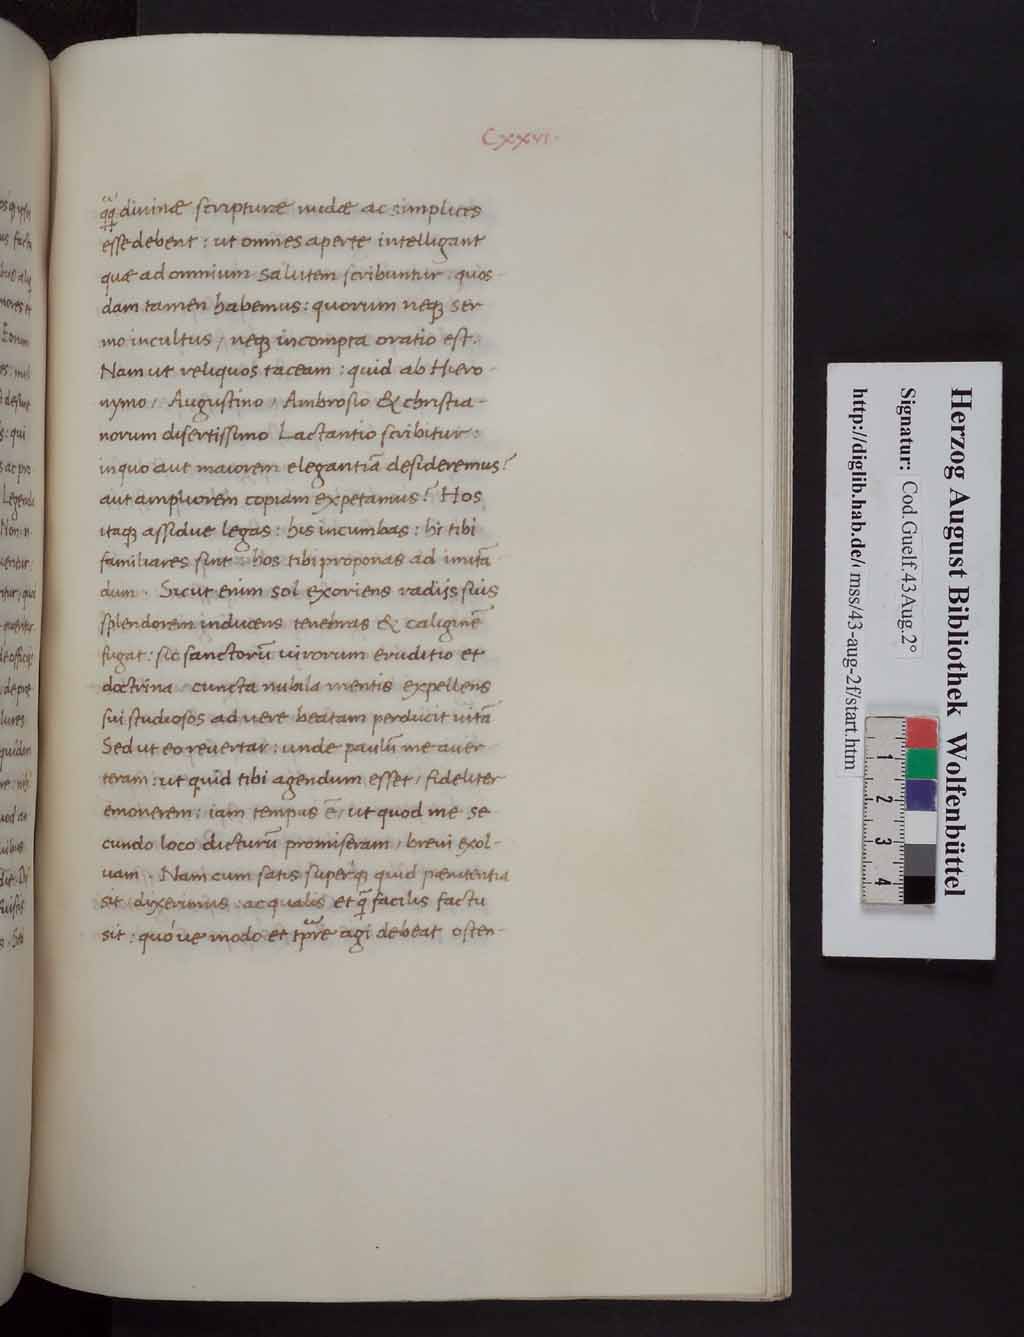 CXXVI.
qq̃ divinæ scripturæ nudæ ac simplices
esse debent : ut omnes aperte intelligant
quæ ad omnium salutem scribuntur : quos-
dam tamen habemus : quorum neqꝫ ser
mo incultus / neqꝫ incompta oratio est.
Nam ut reliquos taceam : quid ab Hiero-
nymo / Augustino / Ambrosio & christia-
norum disertissimo Lactantio scribitur :
in quo aut maiorem elegantiā desideremus?
aut ampliorem copiam expetamus? Hos
itaqꝫ assidue legas : his incumbas : hi tibi
familiares sint : hos tibi proponas ad imitā
dum . Sicut enim sol exoriens radijs suis
splendorem inducens tenebras & caliginē
fugat : sic sanctorū uirorum eruditio et
doctrina / cuncta nubila mentis expellens
sui studiosos ad uere beatam perducit uitā
Sed ut eo reuertar : unde paulū me auer
teram : ut quid tibi agendum esset / fideliter
emonerem : iam tempus ē / ut quod me se
cundo loco dicturū promiseram / breui exol-
uam . Nam cum satis superqꝫ quid pænitentia
sit / dixerimus : ac qualis et q̃ facilis factu
sit : quóue modo et tp̃re agi debeat osten-
Herzog August Bibliothek Wolfenbüttel
Signatur: Cod.Guelf.43 Aug.2°
http://diglib.hab.de/ mss/43-aug-2f/start.htm
1 2 3 4